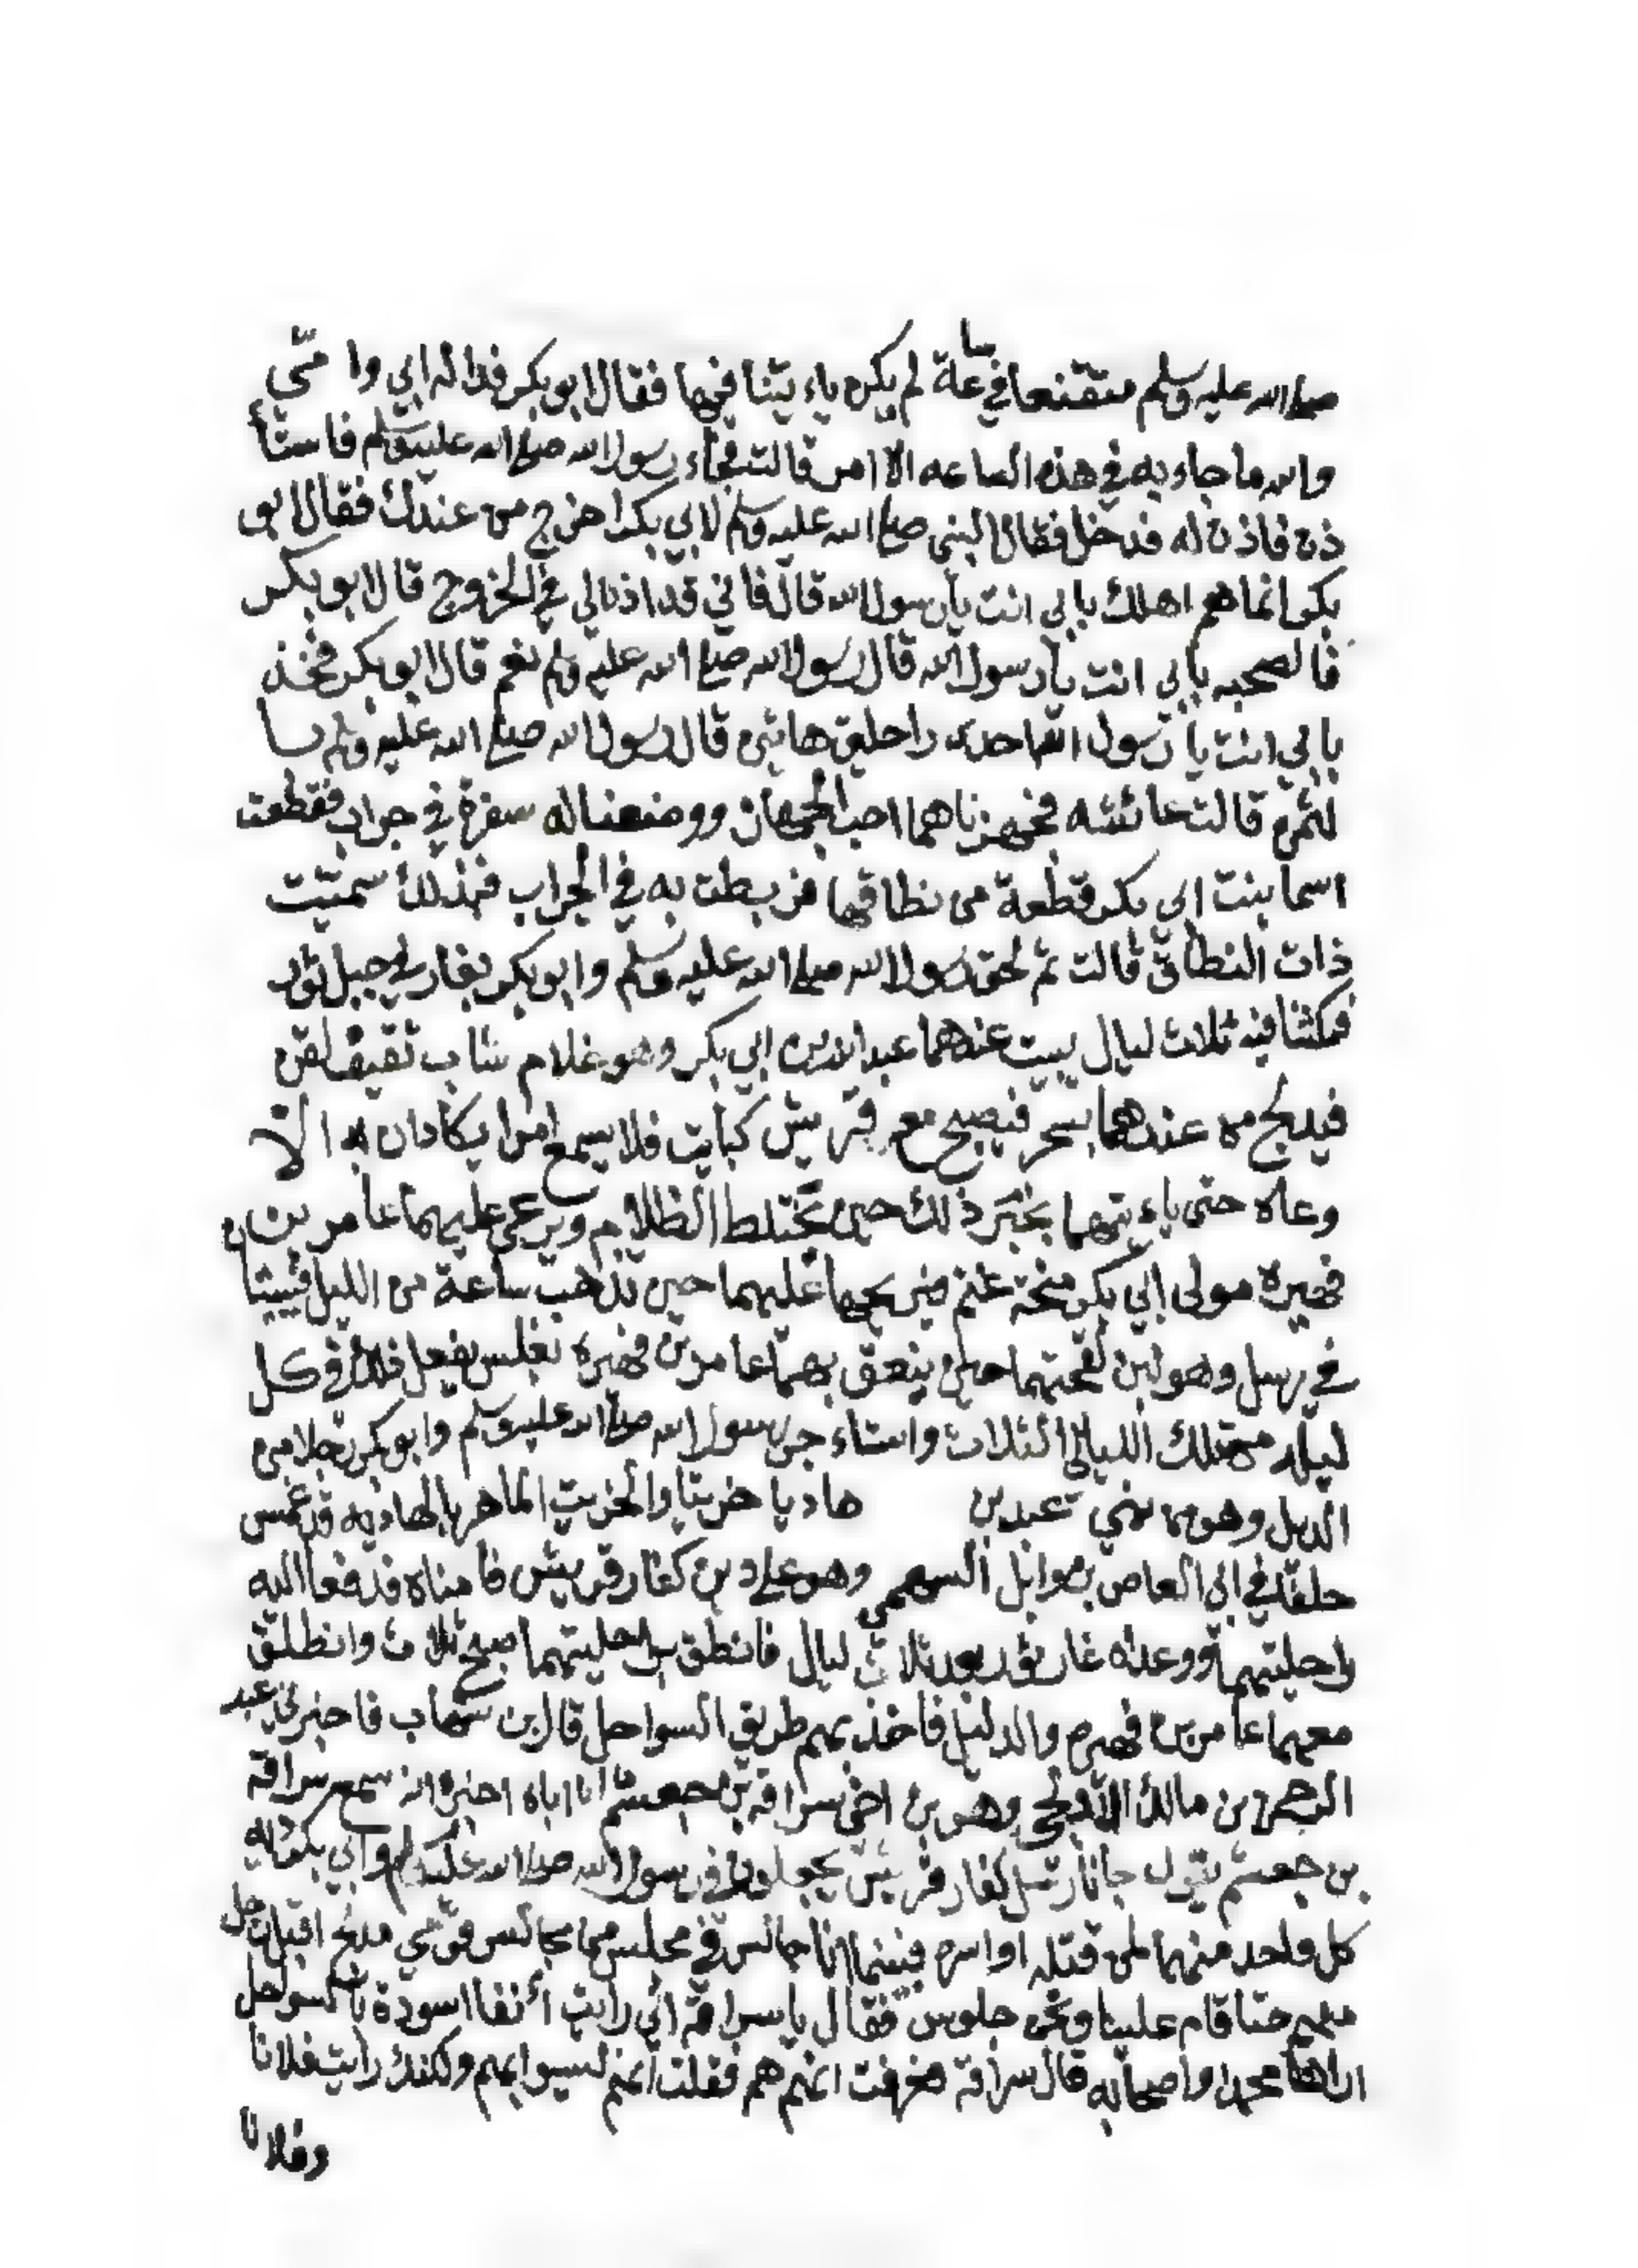 صلى الله عليه وسلم متقنعا في ساعة لم يكن ياءتينا فيها فقال ابو بكر فدا له ابي وا متي
والله ما جاء به في هذه الساعه الا امر قالت فجاء رسول الله صلى الله عليه وسلم فاستأ
ذن فاذن له فدخل فقال النبي صلى الله عليه وسلم لابي بكر اخرج من عندك فقال ابو
بكر انما هم اهلك بابي انت يا رسول الله قال فاني قد اذن لي في الخروج قال ابو بكر
فالصحبه بابي انت يا رسول الله قال رسول الله صلى الله عليه وسلم نعم قال ابو بكر فخذ
بابي انت يا رسول الله احدى راحلتي هاتين قال رسول الله صلى الله عليه وسلم با
لثمن قالت عائشه فجهزناهما احب الجهاز ووضعنا له سفرة في جراب فقطعت
اسما بنت ابي بكر قطعة من نطاقها فربطت به في الجراب فبذلك سميت
ذات النطاق قالت ثم لحق رسول الله صلى الله عليه وسلم وابو بكر بغار في جبل ثور
فمكثنا فيه ثلاث ليال يبيت عندهما عبد الله بن ابي بكر وهو غلام شاب ثقيف لقن
فيدلج من عندهما بسحر فيصبح مع قريش كبايت فلا يسمع امرا يكادان به الا
وعاه حتى ياءتيهما بخبر ذلك حين يختلط الظلام ويرعى عليهما عامر بن
فهيره مولى ابي بكر منحة غنم فيريحها عليهما حين تذهب ساعة من الليل فيبيتا
في رسل وهو لبن لقحتهما حتى ينعق بهما عامر بن فهيره بغلس يفعل ذلك في كل
ليله من تلك الليالي الثلاث واستاءجر رسول الله صلى الله عليه وسلم وابو بكر رجلا من
الديل وهو من بني عبد بن هاديا خريتا والخريت الماهر بالهاديه قد غمس
حلفا في ال العاص بن وايل السهمي وهو على دين كفار قريش فامناه فدفعا اليه
راحلتيهما ووعداه غار ثور بعد ثلاث ليال فانطق براحلتيهما صبح ثلاث وانطلق
معهما عامر بن فهيره والدليل فاخذ بهم طريق السواحل قال بن شهاب فاخبرني عبد
الرحمن بن مالك المدلجي وهو بن اخي سراقه بن جعشم ان اباه اخبره انه سمع سراقة
بن جعشم يقول جانا رسل كفار قريش يجعلون في رسول الله صلى الله عليه وسلم وابي بكر ديه
كل واحد منهما لمن قتله او اسره فبينما انا جالس في مجلس من مجالس قومي مدلج اقبل رجل
منهم حتا قام علينا ونحن جلوس فقال يا سراقه اني رايت أنفا اسودة بالسواحل
اراها محمدا واصحابه قال سراقه فعرفت انهم هم فقلت انهم ليسوا بهم ولكنك رايت فلانا
وفلانا